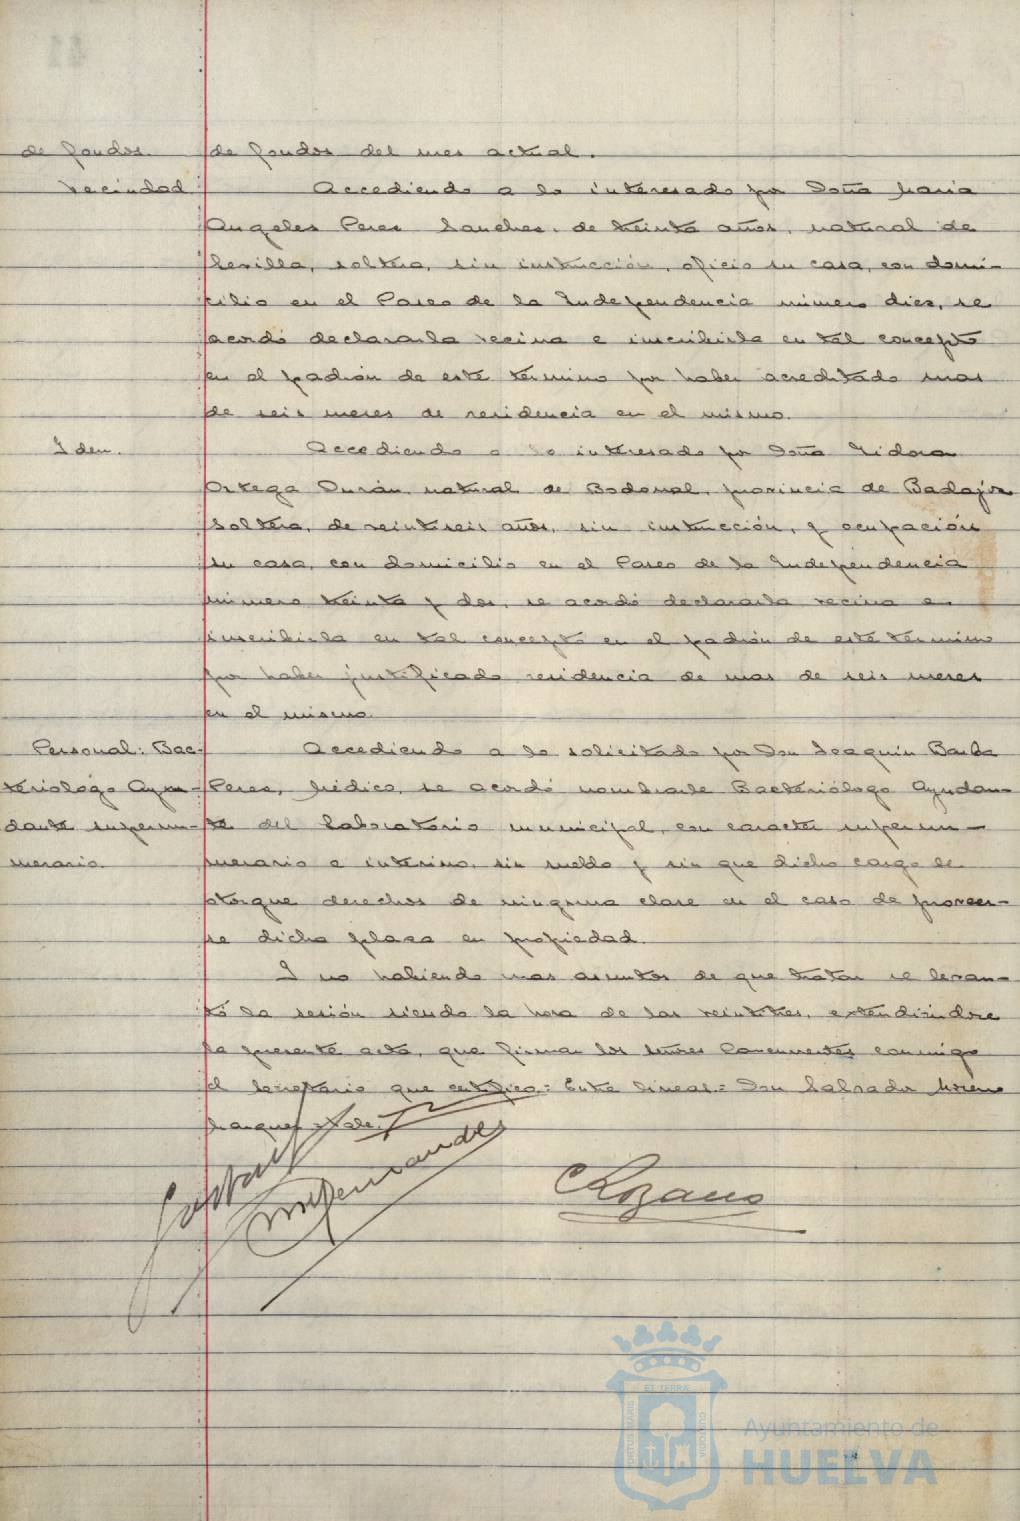 de fondos. de fondos del mes actual.
Vecindad Accediendo a lo interesado por Doña Maria
Angeles Peres Sanches, de treinta años, natural de
Sevilla, soltera, sin instrucción, oficio su casa, con domi-
cilio en el Paseo de la Independencia número dies, se
acordó declararla vecina e inscribirla en tal concepto
en el padrón de este término por haber acreditado mas
de seis meses de residencia en el mismo.
Iden. Accediendo a lo interesado por Doña Isidora
Ortega Durán, natural de Bodonal, provincia de Badajos
soltera, de veintiseis años, sin instrucción, y ocupación
su casa, con domicilio en el Paseo de la Independencia
número treinta y dos, se acordó declararla vecina e
inscribirla en tal concepto en el padrón de este término
por haber justificado residencia de mas de seis meses
en el mismo.
Personal: Bac- Accediendo a lo solicitado por Don Joaquin Barba
teriologo Ayu- Peres, Médico, se acordó nombrarle Bacteriólogo Ayudan-
dante supernu- te del Laboratorio municipal, con caracter supernu-
merario. merario e interino, sin sueldo y sin que dicho cargo le
otorgue derechos de ninguna clase en el caso de proveer-
se dicha plasa en propiedad.
I no habiendo mas asuntos de que tratar se levan-
tó la sesión siendo la hora de las veintitres, extendiéndose
la presente acta, que firman los señores concurrentes conmigo
el Secretario que certifico: Entre lineas: Don Salvador Moreno
Marques: Vale.
Fernandes
Rozano
ET TERRÆ
PORTUS MARIS
CUSTODIA
Ayuntamiento de
HUELVA